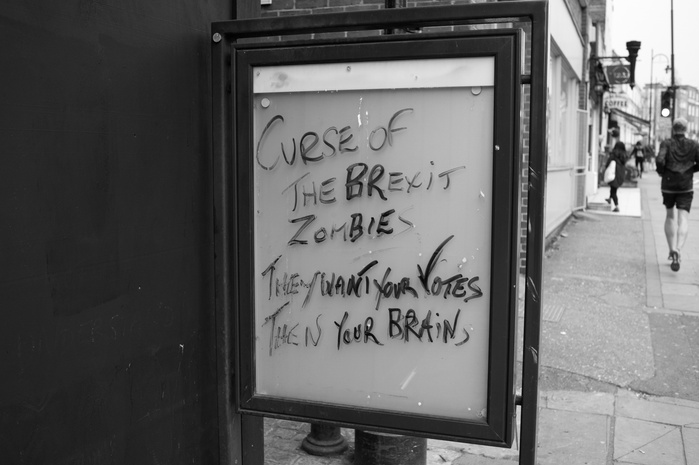 CURSE OF
THE BREXIT
ZOMBIES
THEY WANT YOUR VOTES
THEN YOUR BRAINS
COFFEE